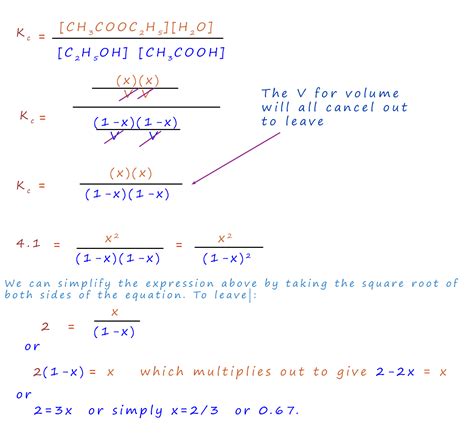 K꜀ = [CH₃COOC₂H₅][H₂O]
[C₂H₅OH] [CH₃COOH]
(x)(x)
V V
K꜀ =
(1-x)(1-x)
V V
The V for volume
will all cancel out
to leave
K꜀ = (x)(x)
(1-x)(1-x)
4.1 = x² = x²
(1-x)(1-x) (1-x)²
We can simplify the expression above by taking the square root of
both sides of the equation. To leave|:
2 = x
(1-x)
or
2(1-x) = x which multiplies out to give 2-2x = x
or
2=3x or simply x=2/3 or 0.67.